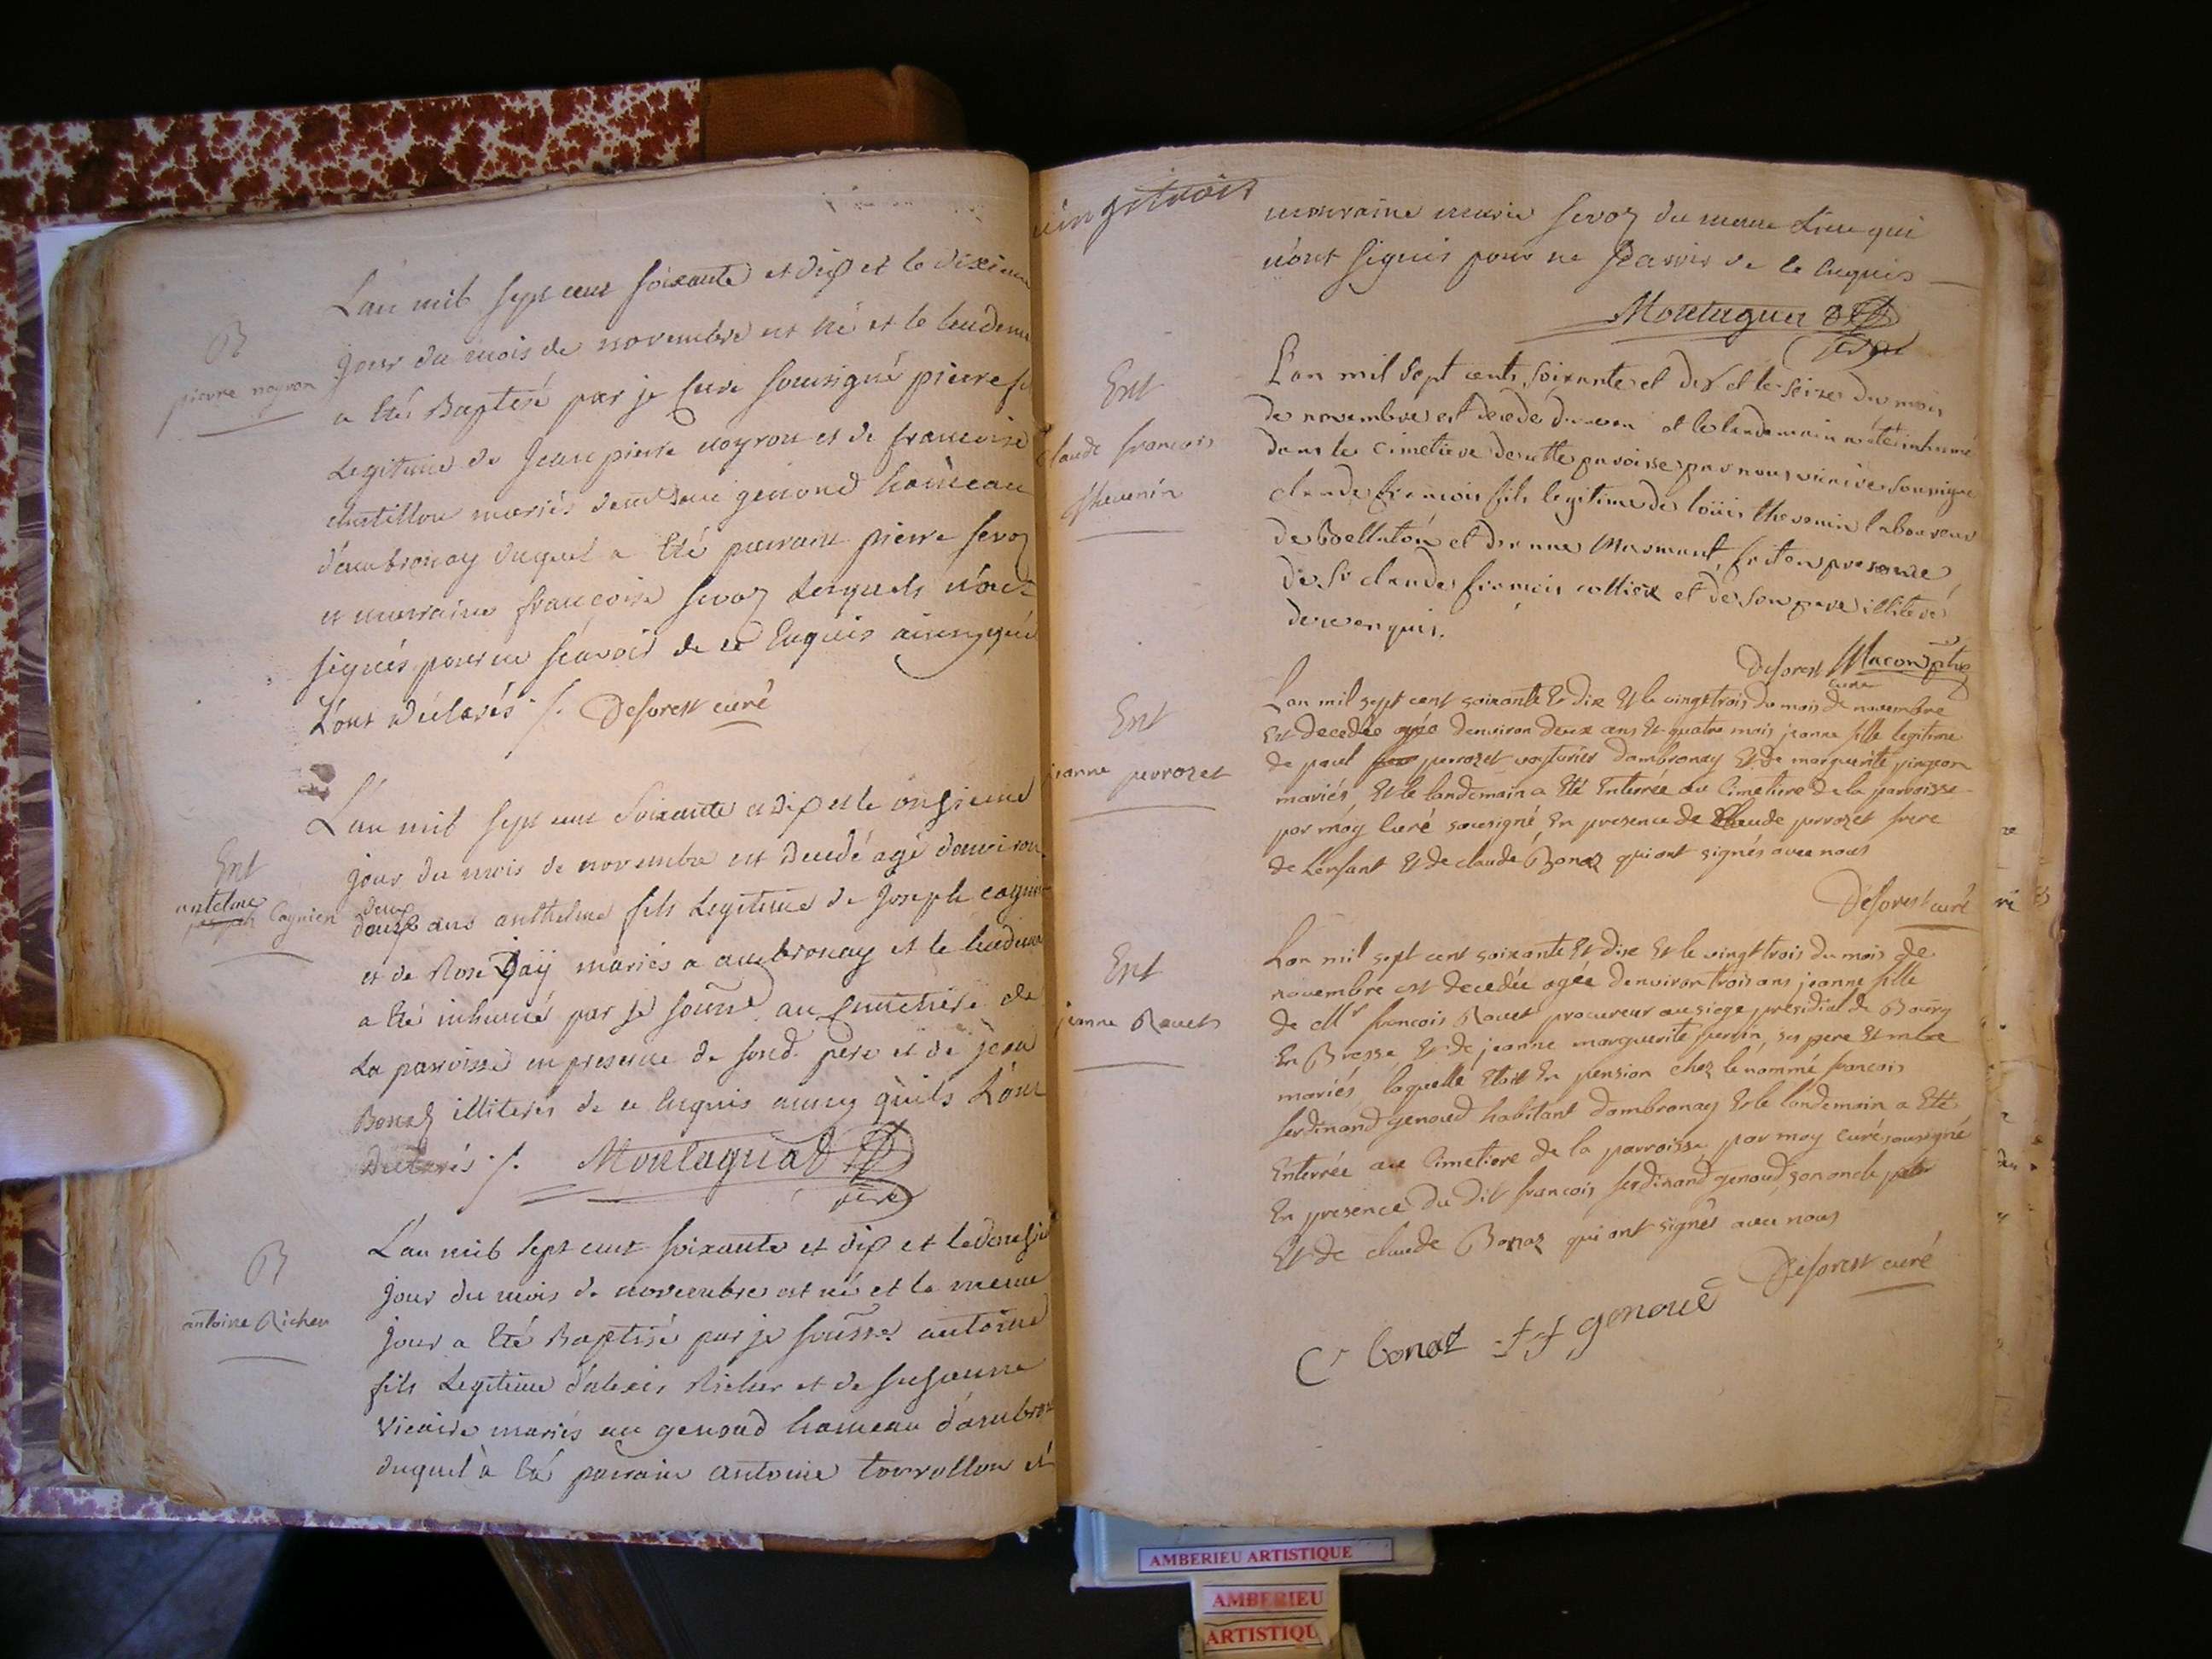 B
pierre noyron
L'an mil sept cent soixante et dix et le dixieme
jour du mois de novembre est né et le lendem
a été Baptisé par je curé soussigné pierre fi
Legitime de Jean pierre noyron et de francoise
chastillon mariés genoud hameau
d'ambronay duquel a été parrain pierre sevoz
et marraine françoise sevoz lesquels n'ont
signés pour ne sçavoir de ce Enquis ainsy que
L'ont déclarés ./. Deforest curé
Ent
antelme
joseph Cagnien
L'an mil sept cent soixante et dix et le onzieme
jour du mois de novembre est decedé agé d'environ
deux
douze ans anthelme fils Legitime de Joseph cagni
et de Rose Gaÿ mariés a ambronay et le lendem
a été inhumé par je souss. au cimetiere de
La paroisse en presence de sond. pere et de jean
Bonaz illiterés de ce enquis ainsy qu'ils L'ont
declarés ./. Montagnat
vicre
B
antoine Richer
L'an mil sept cent soixante et dix et le douzie
jour du mois de novembre est né et le meme
jour a été Baptisé par je souss. antoine
fils Legitime d'alexis Richer et de susanne
vicaire mariés au genoud hameau d'ambron
duquel à été parrain antoine tourollon et
vingt trois
marraine marie sevoz du meme Lieu qui
n'ont signés pour ne sçavoir de ce enquis
Montagnat
vicre
Ent
Claude francois
thevenin
L'an mil sept cents soixante et dix et le seize du mois
de novembre est decedé et le lendemain a été inhumé
dans le cimetiere de cette paroisse par nous vicaire soussigné
claude francois fils legitime de loüis thevenin laboureur
de Boelluton et Marmant, fait en presence
de Sr claude francois collier et de son pere illiteré
de ce enquis.
Deforest Macon ptre
curé
Ent
jeanne perrozet
L'an mil sept cent soixante Et dix Et le vingt trois du mois de novembre
Est decedée agée d'environ deux ans Et quatre mois jeanne fille legitime
de paul perrozet voiturier d'ambronay Et de marguerite pingeon
mariés, Et le landemain a Eté Enterrée au Cimetiere de la parroisse
par moy Curé sousigné, En presence de Claude perrozet frere
de L'enfant Et de claude Bonaz qui ont signés avec nous
Deforest curé
Ent
jeanne Rouet
L'an mil sept cent soixante Et dix Et le vingt trois du mois de
novembre est decedée agée d'environ trois ans jeanne fille
de Mr francois Rouet procureur au siege presidial de Bourg
En Bresse, Et de jeanne marguerite perrin, ses pere Et mere
mariés, laquelle Etoit En pension chez le nommé francois
ferdinand genoud habitant d'ambronay Et le landemain a Eté
Enterrée au Cimetiere de la parroisse par moy curé sousigné
En presence du dit francois ferdinand genoud, son oncle
Et de claude Bonaz qui ont signés avec nous
Deforest curé
Cr bonaz ff genoud
AMBERIEU ARTISTIQUE
AMBERIEU
ARTISTIQU